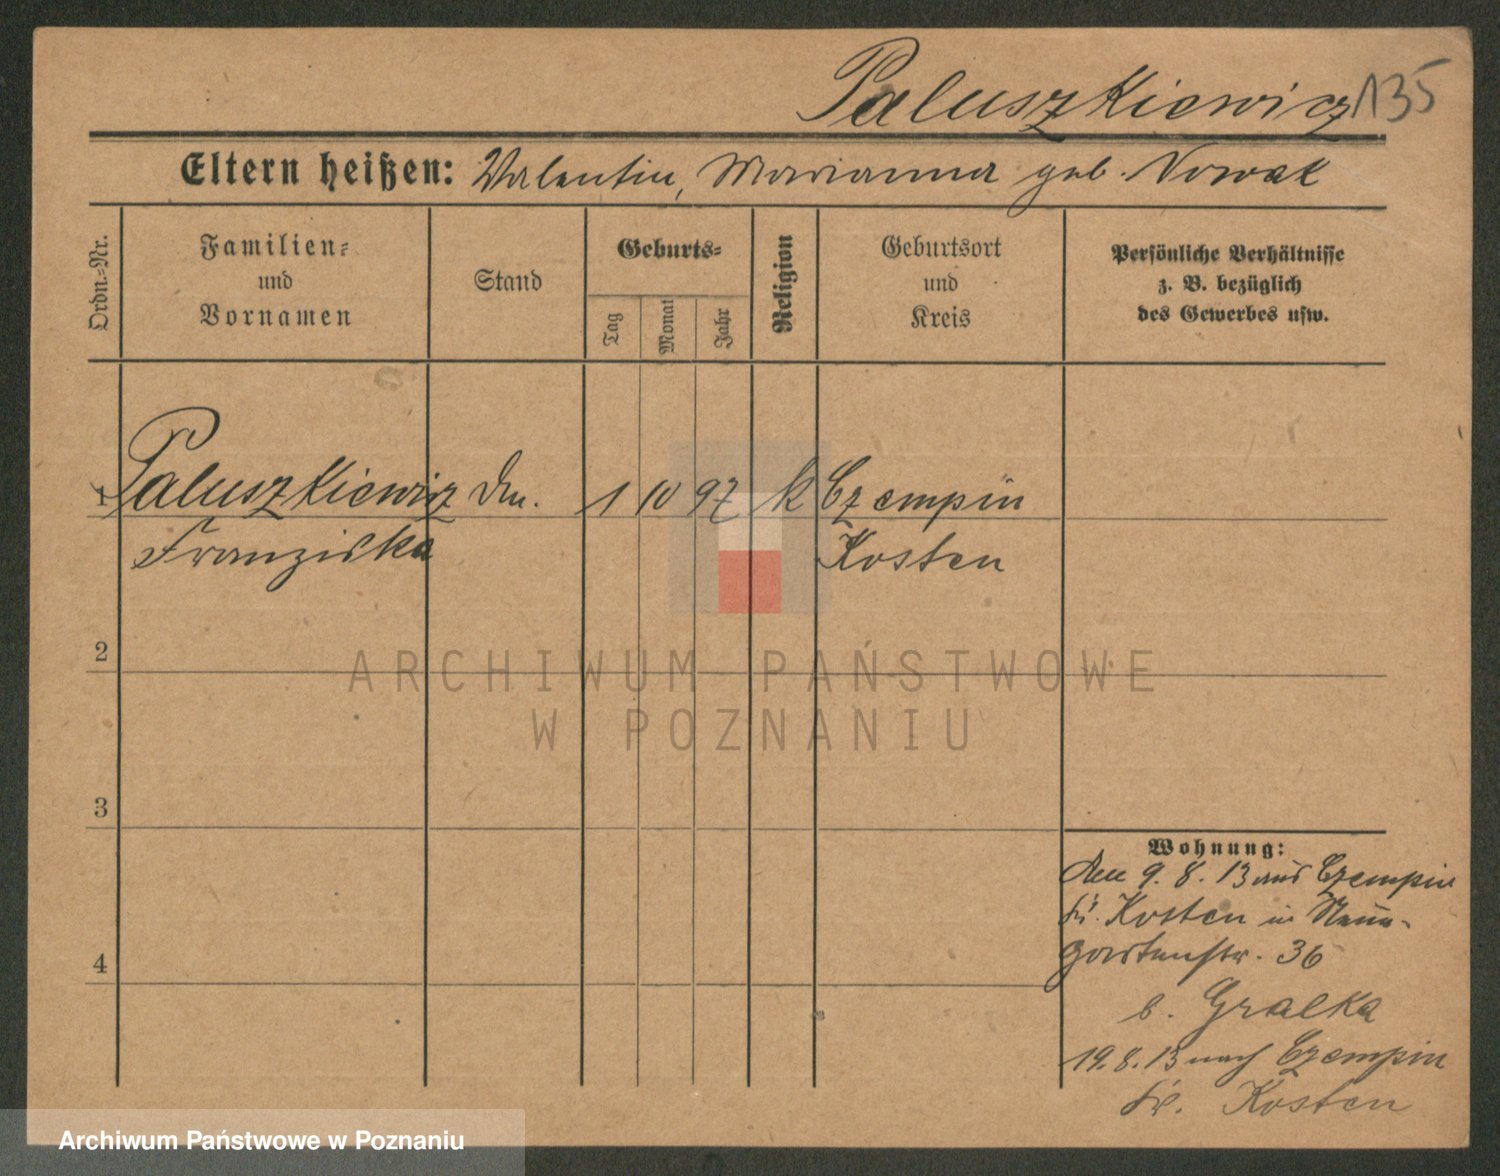 Paluszkiewicz 135
Eltern heißen: Valentin, Marianna geb. Nowak
Ordn.-Nr.
Familien-
und
Vornamen
Stand
Geburts-
Tag
Monat
Jahr
Religion
Geburtsort
und
Kreis
Persönliche Verhältnisse
z. B. bezüglich
des Gewerbes usw.
1 Paluszkiewicz 1 10 97 k Czempin
Franziska Kosten
2
3
4
Wohnung:
den 9.8.13 aus Czempin
Kr. Kosten in
gartenstr. 36
b. Gralka
19.8.13 nach Czempin
Kr. Kosten
ARCHIWUM PAŃSTWOWE
W POZNANIU
Archiwum Państwowe w Poznaniu